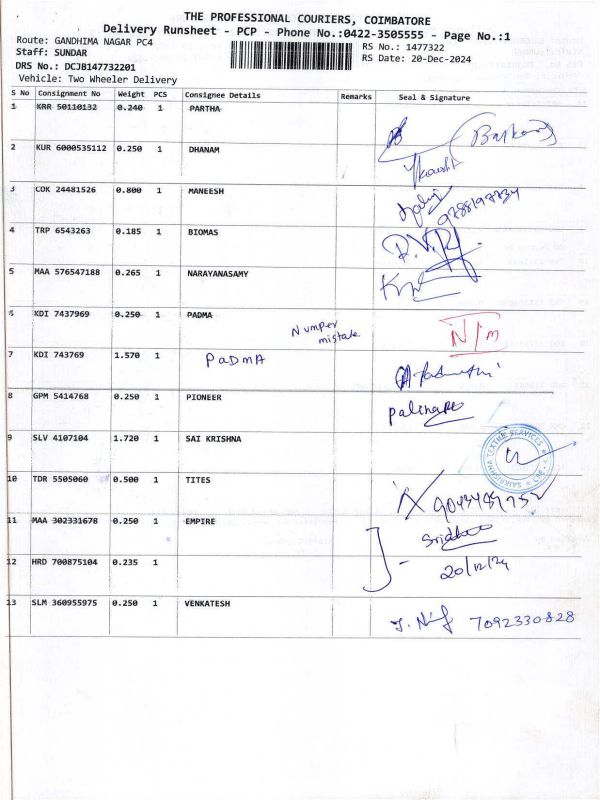 THE PROFESSIONAL COURIERS, COIMBATORE
Delivery Runsheet - PCP - Phone No.:0422-3505555 - Page No.:1
Route: GANDHIMA NAGAR PC4 RS No.: 1477322
Staff: SUNDAR RS Date: 20-Dec-2024
DRS No.: DCJB147732201
Vehicle: Two Wheeler Delivery
S No Consignment No Weight PCS Consignee Details Remarks Seal & Signature
1 KRR 50110132 0.240 1 PARTHA
2 KUR 6000535112 0.250 1 DHANAM
3 COK 24481526 0.800 1 MANEESH
4 TRP 6543263 0.185 1 BIOMAS
5 MAA 576547188 0.265 1 NARAYANASAMY
6 KDI 7437969 0.250 1 PADMA Numper mistake N/m
7 KDI 743769 1.570 1 PADMA
8 GPM 5414768 0.250 1 PIONEER
9 SLV 4107104 1.720 1 SAI KRISHNA
10 TDR 5505060 0.500 1 TITES
11 MAA 302331678 0.250 1 EMPIRE
12 HRD 700875104 0.235 1 20/12/24
13 SLM 360955975 0.250 1 VENKATESH 7092330828